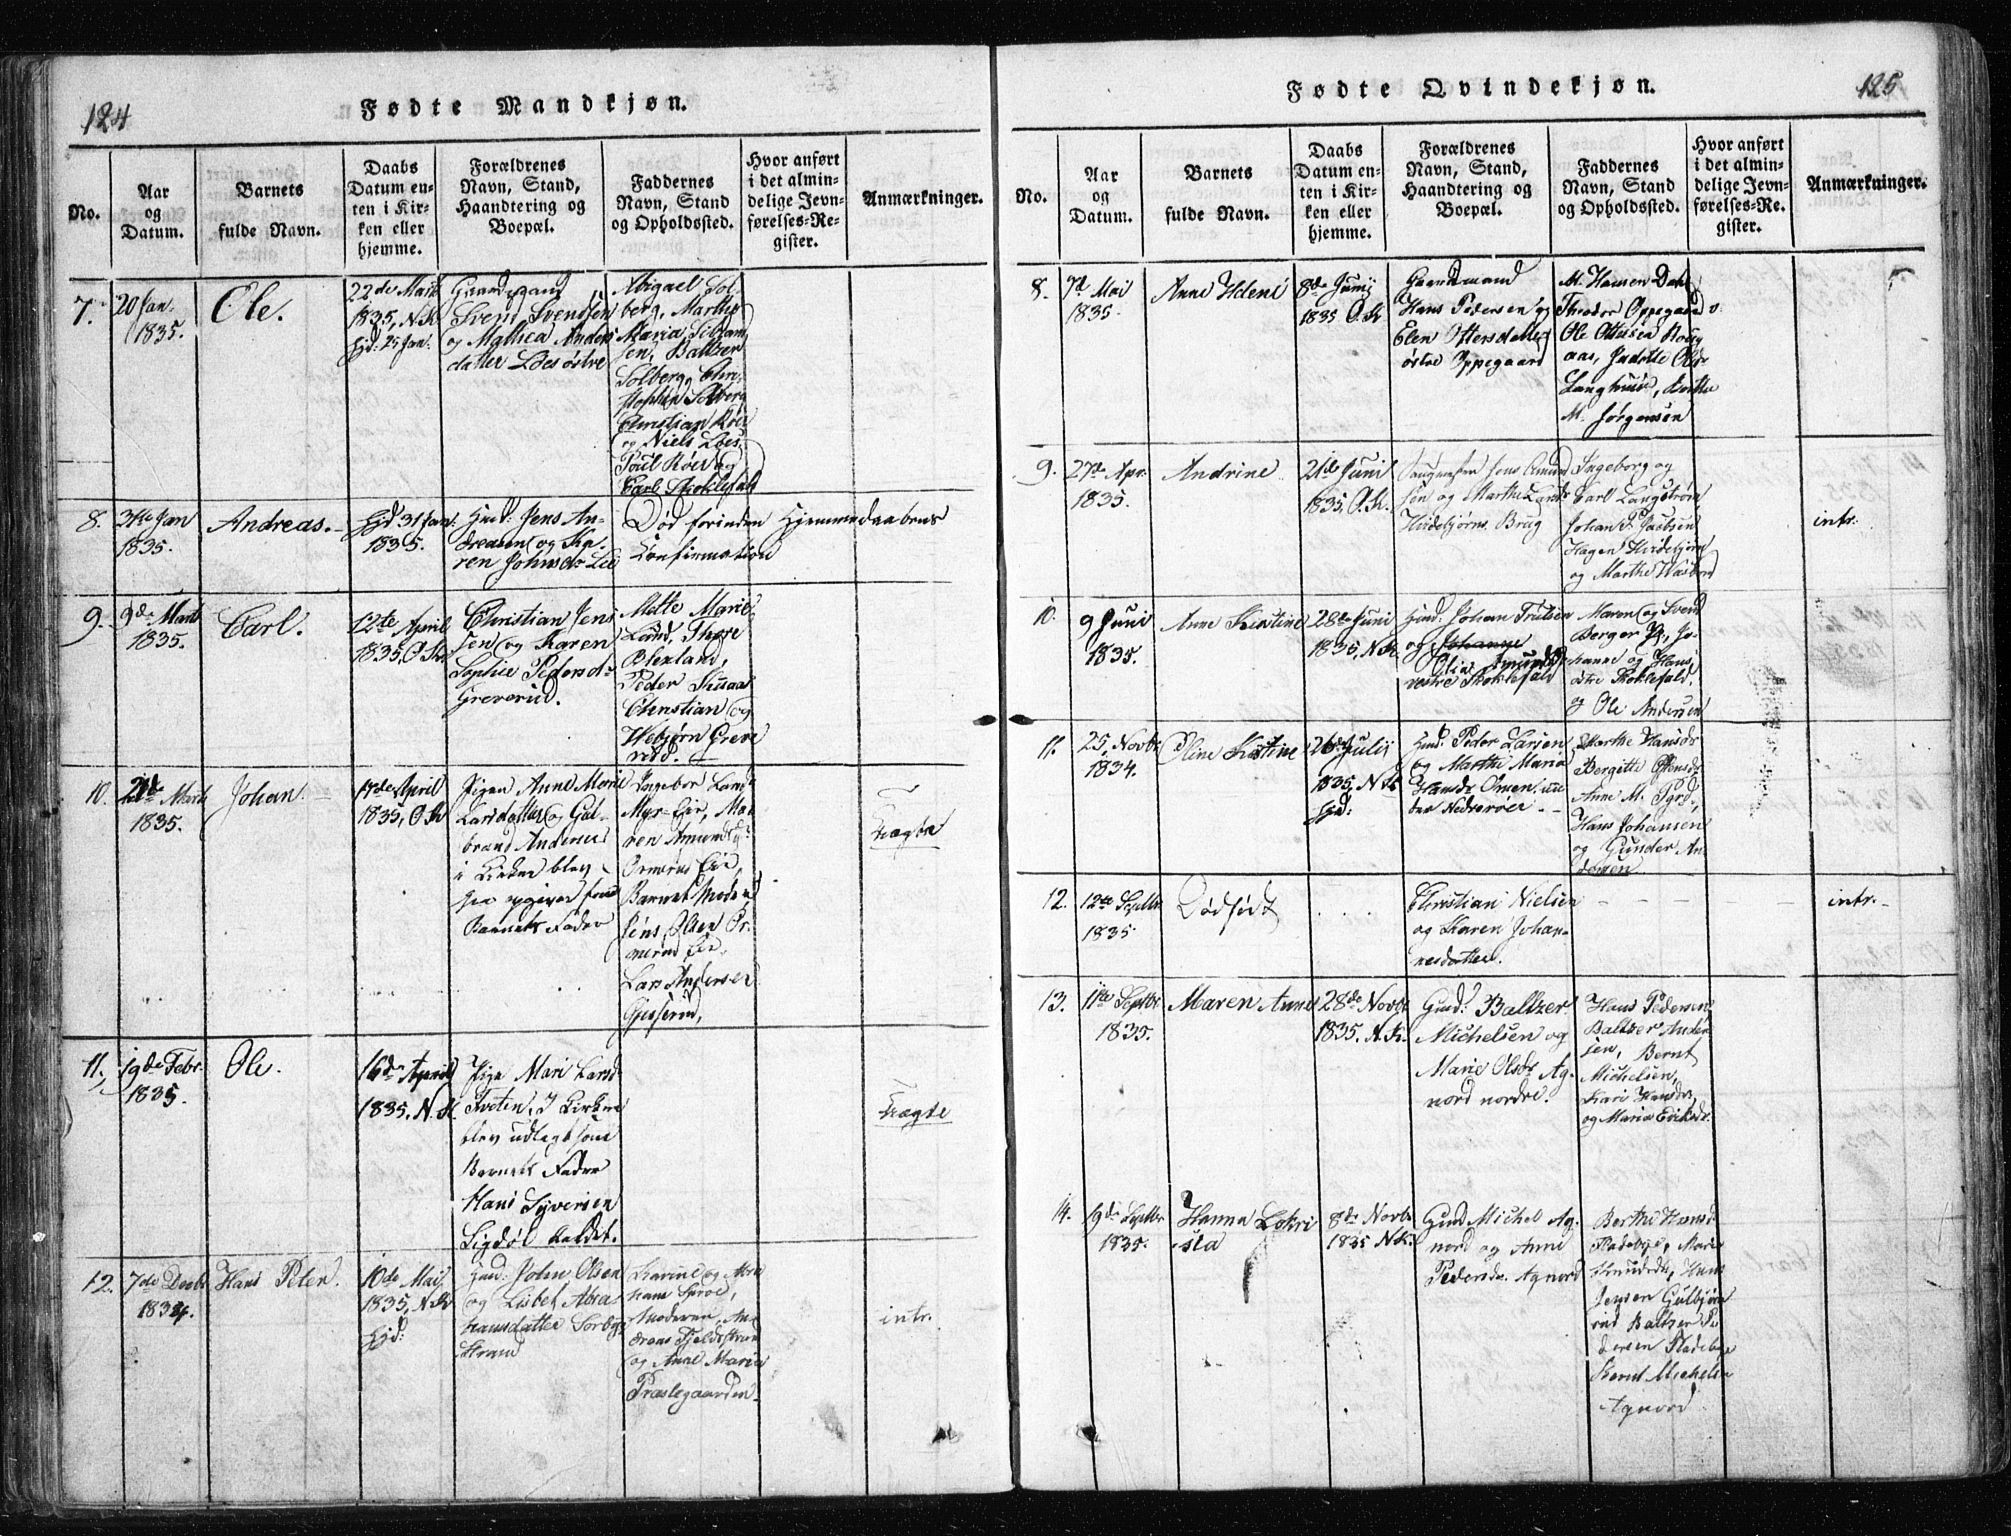 124
Fødte Mandkjøn.
No.
Aar
og
Datum.
Barnets
fulde Navn.
Daabs
Datum en-
ten i Kir-
ken eller
hjemme.
Forældrenes
Navn, Stand,
Haandtering og
Boepæl.
Faddernes
Navn, Stand
og Opholdssted.
Hvor anført
i det almin-
delige Jevn-
førelses-Re-
gister.
Anmærkninger.
7.
20 Jan.
1835.
Ole.
22de Marts
1835, N.K
Hjd: 25 Jan.
Svend Svendsen
og Mathea Anders
datter Loes østre
Abigael Sol-
berg, Marthe
Maria
sen, Baltzer
Solberg, Chri-
stophen Solberg
Christian Røer
og Niels Loes,
Poul Røer og
Carl Skoklefald
8.
31te Jan
1835.
Andreas.
Hjd 31 Jan:
1835.
Gmd: Jens An-
dreasen og Ka-
ren Johnsdr Lee
Død forinden Hjemmedaabens
Confirmation
9.
9de Marts
1835.
Carl.
12te April
1835, O.K.
Christian Jens
sen og Karen
Sophie Pedersdr
Greverud.
Mette Marie
Lund, Thore
Blexland,
Peder
Christian og
Webjørn Greve
rud.
10.
21de Marts
1835.
Johan.
17de April
1835, O.K
Pigen Anne Marie
Larsdatter og Gul-
brand Andersen
i Kirken blev
opgiven som
Barnets Fader
Ingebor
Myr-Eie, Ma-
ren Amundsdr
Ormerud Eie,
Barnets Moder
Jens Olsen Or-
merud Eie,
Lars Andersen
Gjisserud,
Uægte
11.
19de Febr.
1835.
Ole.
16de April
1835, N.K.
Pige Mari Larsd
Tveten, I Kirken
blev udlagt som
Barnets Fader
Hans Syversen
Sigdøl kaldet.
Uægte
12.
7de Decbr
1834.
Hans Peter.
10de Mai
1835, N.K
Hjd:
Gmd: John Olsen
og Lisbet Abra-
hamsdatter Torbgs
Strand
Karine og Abra
ham Sproe,
Moderen, An
dreas Fjeldstrand
og Anne Maria
Præstegaarden.
intr.
Fødte Qvindekjøn.
125
No.
Aar
og
Datum.
Barnets
fulde Navn.
Daabs
Datum en-
ten i Kir-
ken eller
hjemme.
Forældrenes
Navn, Stand,
Haandtering og
Boepæl.
Faddernes
Navn, Stand
og Opholdssted.
Hvor anført
i det almin-
delige Jevn-
førelses-Re-
gister.
Anmærkninger.
8.
7de Mai
1835.
Anne Helene
8de Junij
1835 O.K
Gaardmand
Hans Pedersen og
Elen Ottersdatter
østre Oppegaard
M. Hansen Dahl
Theodor Oppegaard v.
Ole Ottersen Kolg
aas, Jndette Olsdr
Langhuus, Berthe
M. Jørgensen
9.
27de Apr.
1835.
Andrine
21de Juni
1835, O.K.
Saugmester Jens Amund
sen og Marthe Larsdr
Hvidebjørns Brug
Ingeborg og
Carl Langstrøm
Johan F. Jacobsen
Hagen Hvidebjørn
og Marthe
intr.
10.
9 Juni
1835.
Anne Kirstine
28de Juni
1835, N.K
Gmd. Johan Trulsen
og Johanne
Olia Amundsdr
vestre Skoklefald
Maren og Svend
Berger Pr., Jo-
hanne og Hans
østre Skoklefald,
og Ole Andersen
11.
25. Novbr
1834.
Oline Kirstine
26de Julij
1835, N.K
Hjd:
Gmd. Peder Larsen
og Marthe Maria
Hansdr Omen un
der Nedrerøer
Marthe Hansdr
Bergitte Ottersdr
Anne M. Syvrdr,
Hans Johansen
og Gunder An
dersen
12.
12te Septbr
1835.
Dødfødt
Christian Nielsen
og Karen Johan-
nesdatter.
intr.
13.
11te Septbr
1835.
Maren Anne
28de Novbr
1835. N.K.
Gmd: Baltzer
Michelsen og
Marie Olsdr Ag-
nord nordre.
Hans Pedersen
Baltzer Ander
sen, Bernt
Michelsen,
Kari Hansdr,
og Maria Eriksdr.
14.
19de Septbr
1835.
Hanna Lovi
sla
8de Novbr
1835 N.K.
Gmd Michel Ag-
nord og Anne
Pedersdr. Agnord
Berthe Hansd
Fladebye, Maria
Knudsdr, Hans
Jensen Gulbjørn
rud Baltzer Pe
dersen Fladebye
Bernt Michelsen
Agnord.